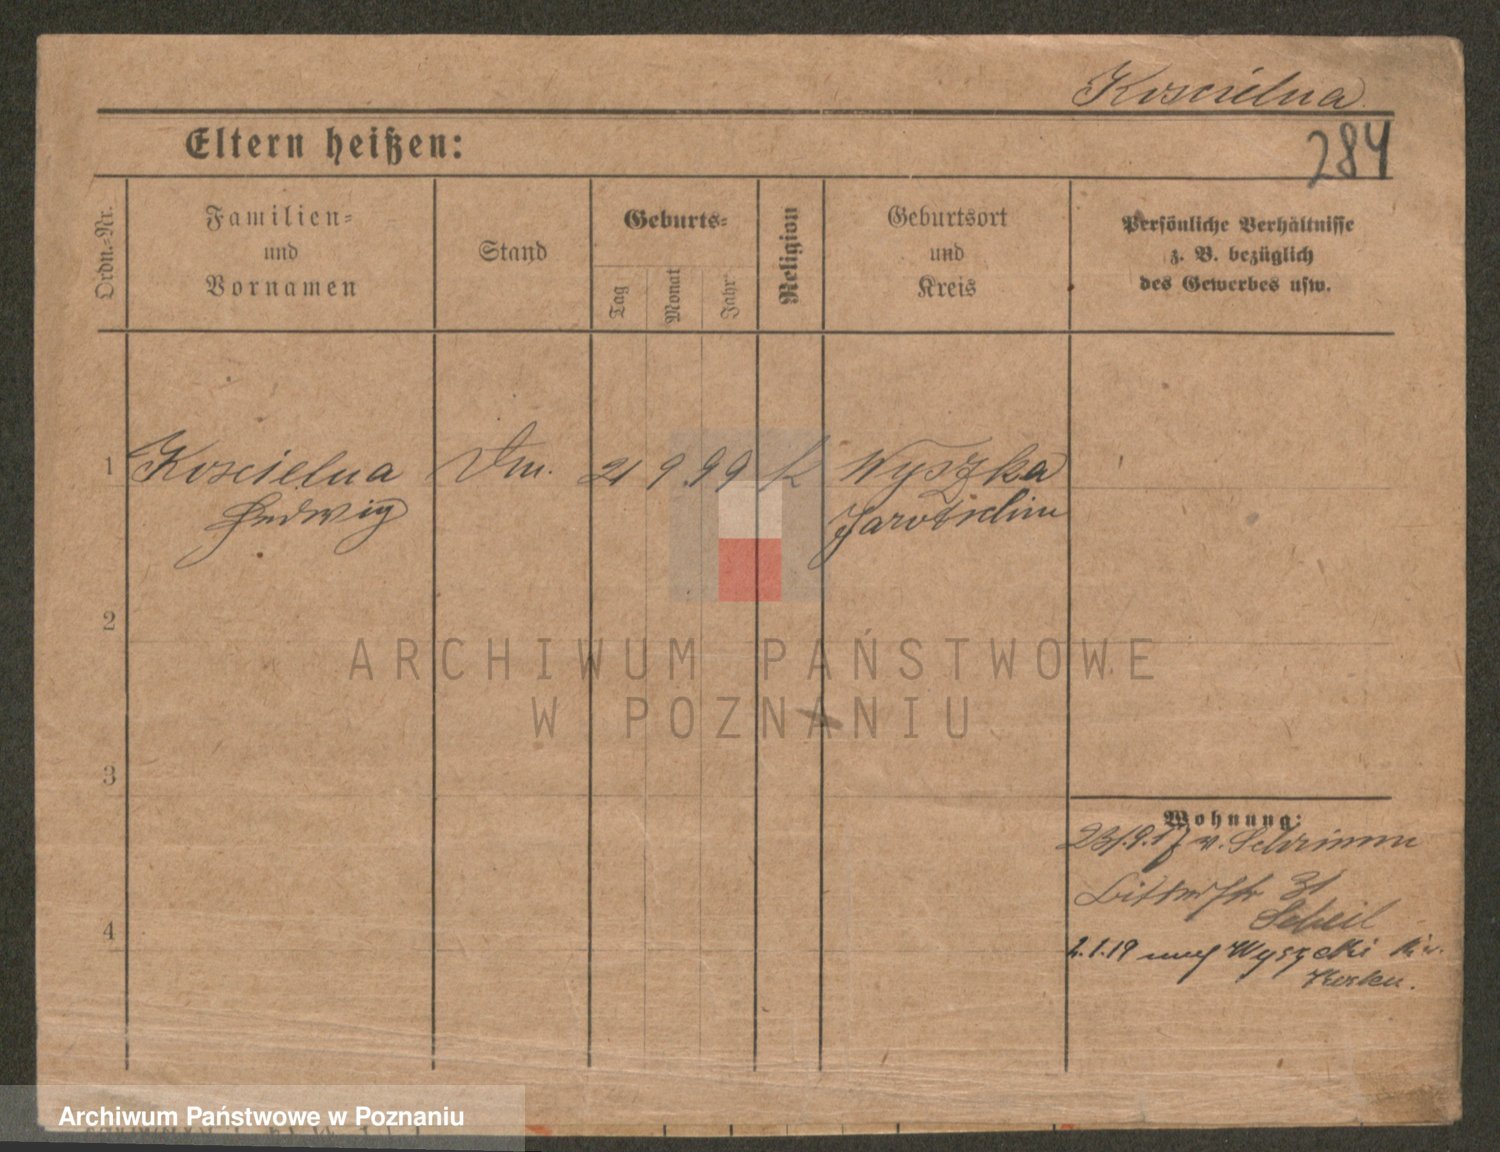 Koscielna
284
Eltern heißen:
Ordn.-Nr.
Familien-
und
Vornamen
Stand
Geburts-
Tag
Monat
Jahr
Religion
Geburtsort
und
Kreis
Persönliche Verhältnisse
z. B. bezüglich
des Gewerbes usw.
1 Koscielna Dm. 21 9 99 K Wyszka
Hedwig Jarotschin
2
3
4
Wohnung:
23/.9.17 v. Schrimm
31
Scheil
2.1.19 nach Wyszcki
ARCHIWUM PAŃSTWOWE
W POZNANIU
Archiwum Państwowe w Poznaniu